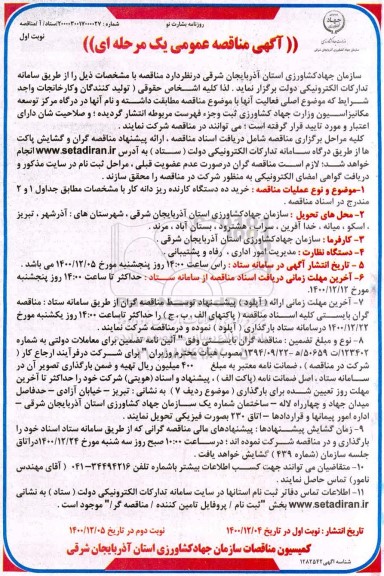 روزنامه بشارت نو
شماره : ۲۰۰۰۰۳۰۱۷۰۰۰۰۲۷/ستاد/۱ اقتصاد
نوبت اول
(( آگهی مناقصه عمومی یک مرحله ای))
سازمان جهادکشاورزی استان آذربایجان شرقی درنظردارد مناقصه با مشخصات ذیل را از طریق سامانه
تدارکات الکترونیکی دولت برگزار نماید . لذا کلیه اشخاص حقوقی ( تولید کنندگان وکارخانجات واجد
شرایط که موضوع اصلی فعالیت آنها با موضوع مناقصه مطابقت داشته و نام آنها در درگاه مرکز توسعه
مکانیزاسیون وزارت جهاد کشاورزی ثبت وجزء فهرست مربوطه انتشار گردیده ؛ و صلاحیت شان دارای
اعتبار و مورد تایید قرار گرفته است ؛ می توانند در مناقصه شرکت نمایند .
کلیه مراحل برگزاری مناقصه شامل: دریافت اسناد مناقصه ، ارائه پیشنهاد مناقصه گران و گشایش پاکت
ها از طریق درگاه سامانه تدارکات الکترونیکی دولت ( ستاد ) به آدرس www.setadiran.ir انجام
خواهد شد؛ لازم است مناقصه گران درصورت عدم عضویت قبلی ، مراحل ثبت نام در سایت مذکور و
دریافت گواهی امضای الکترونیکی به منظور شرکت در مناقصه را محقق سازند .
۱-موضوع و نوع عملیات مناقصه : خرید ده دستگاه کارنده ریز دانه کار با مشخصات مطابق جداول ۱ و ۲
مندرج در اسناد مناقصه .
۲- محل های تحویل : سازمان جهادکشاورزی استان آذربایجان شرقی ، شهرستان های : آذرشهر ، تبریز
، اسکو ، میانه ، خدا آفرین ، سراب، هشترود ، بستان آباد ، مرند .
۳- کارفرما : سازمان جهادکشاورزی استان آذربایجان شرقی .
۴- دستگاه نظارت : مدیریت امور اداری ، رفاه و پشتیبانی .
۵ – تاریخ انتشار آگهی در سامانه ستاد : راس ساعت ۱۴:۰۰ روز پنجشنبه مورخ ۱۴۰۰/۱۲/۰۵ می باشد .
۶- آخرین مهلت زمانی دریافت اسناد مناقصه از سامانه ستاد : حداکثر تا ساعت ۱۴:۰۰ روز پنجشنبه
مورخ ۱۴۰۰/۱۲/۱۲.
۷- آخرین مهلت زمانی ارائه ( آپلود ) پیشنهاد توسط مناقصه گران از طریق سامانه ستاد : مناقصه
گران بایستی کلیه اسناد مناقصه (پاکتهای الف ، ب ، ج ) را حداکثر تاساعت ۱۴:۰۰ روز یکشنبه مورخ
۱۴۰۰/۱۲/۲۲ درسامانه ستاد بارگذاری ( آپلود ) نموده و درمناقصه شرکت نمایند .
۸- نوع و مبلغ تضمین : مناقصه گران بایستی وفق " آئین نامه تضمین برای معاملات دولتی به شماره
۱۲۳۴۰۲/ت۵۰۶۵۹ه – ۱۳۹۴/۰۹/۲۲ مصوب هیأت محترم وزیران " برای شرکت درفرآیند ارجاع کار (
شرکت در مناقصه ) ، ضمانت نامه معتبر به مبلغ ۴۰۰ میلیون ریال تهیه و ضمن بارگذاری تصویر آن در
سامانه ستاد ، اصل ضمانت نامه (پاکت الف ) ، پیشنهاد و اسناد (هویتی) شرکت خود را حداکثر تا آخرین
مهلت روز تعیین شده برای بارگذاری ( موضوع ردیف ۷ ) به نشانی : تبریز – خیابان آزادی – حدفاصل
میدان جهاد و چهارراه لاله – ساختمان شماره یک سازمان جهاد کشاورزی استان آذربایجان شرقی –
اداره امور پیمانها و قراردادها – اتاق ۲۳۰ بصورت فیزیکی تحویل نمایند .
۹- زمان گشایش پیشنهادها : پیشنهادهای مالی مناقصه گرانی که از طریق سامانه ستاد اسناد خود را
بارگذاری و در مناقصه شرکت نموده اند : درساعت ۱۰:۰۰ صبح روز سه شنبه مورخ ۱۴۰۰/۱۲/۲۴دراتاق
جلسه سازمان (شماره ۴۳۹ ) گشایش خواهد یافت .
۱۰- متقاضیان می توانند جهت کسب اطلاعات بیشتر باشماره تلفن ۳۴۴۹۴۲۱۶-۰۴۱ ( آقای مهندس
نامور) تماس حاصل نمایند .
۱۱- اطلاعات تماس دفاتر ثبت نام استانها در سایت سامانه تدارکات الکترونیکی دولت ( ستاد ) به نشانی
www.setadiran.ir بخش "ثبت نام / پروفایل تامین کننده / مناقصه گر" موجود است .
تاریخ انتشار : نوبت اول در تاریخ ۱۴۰۰/۱۲/۰۴ نوبت دوم در تاریخ ۱۴۰۰/۱۲/۰۵
کمیسیون مناقصات سازمان جهادکشاورزی استان آذربایجان شرقی
شناسه آگهی ۱۲۸۲۵۴۲